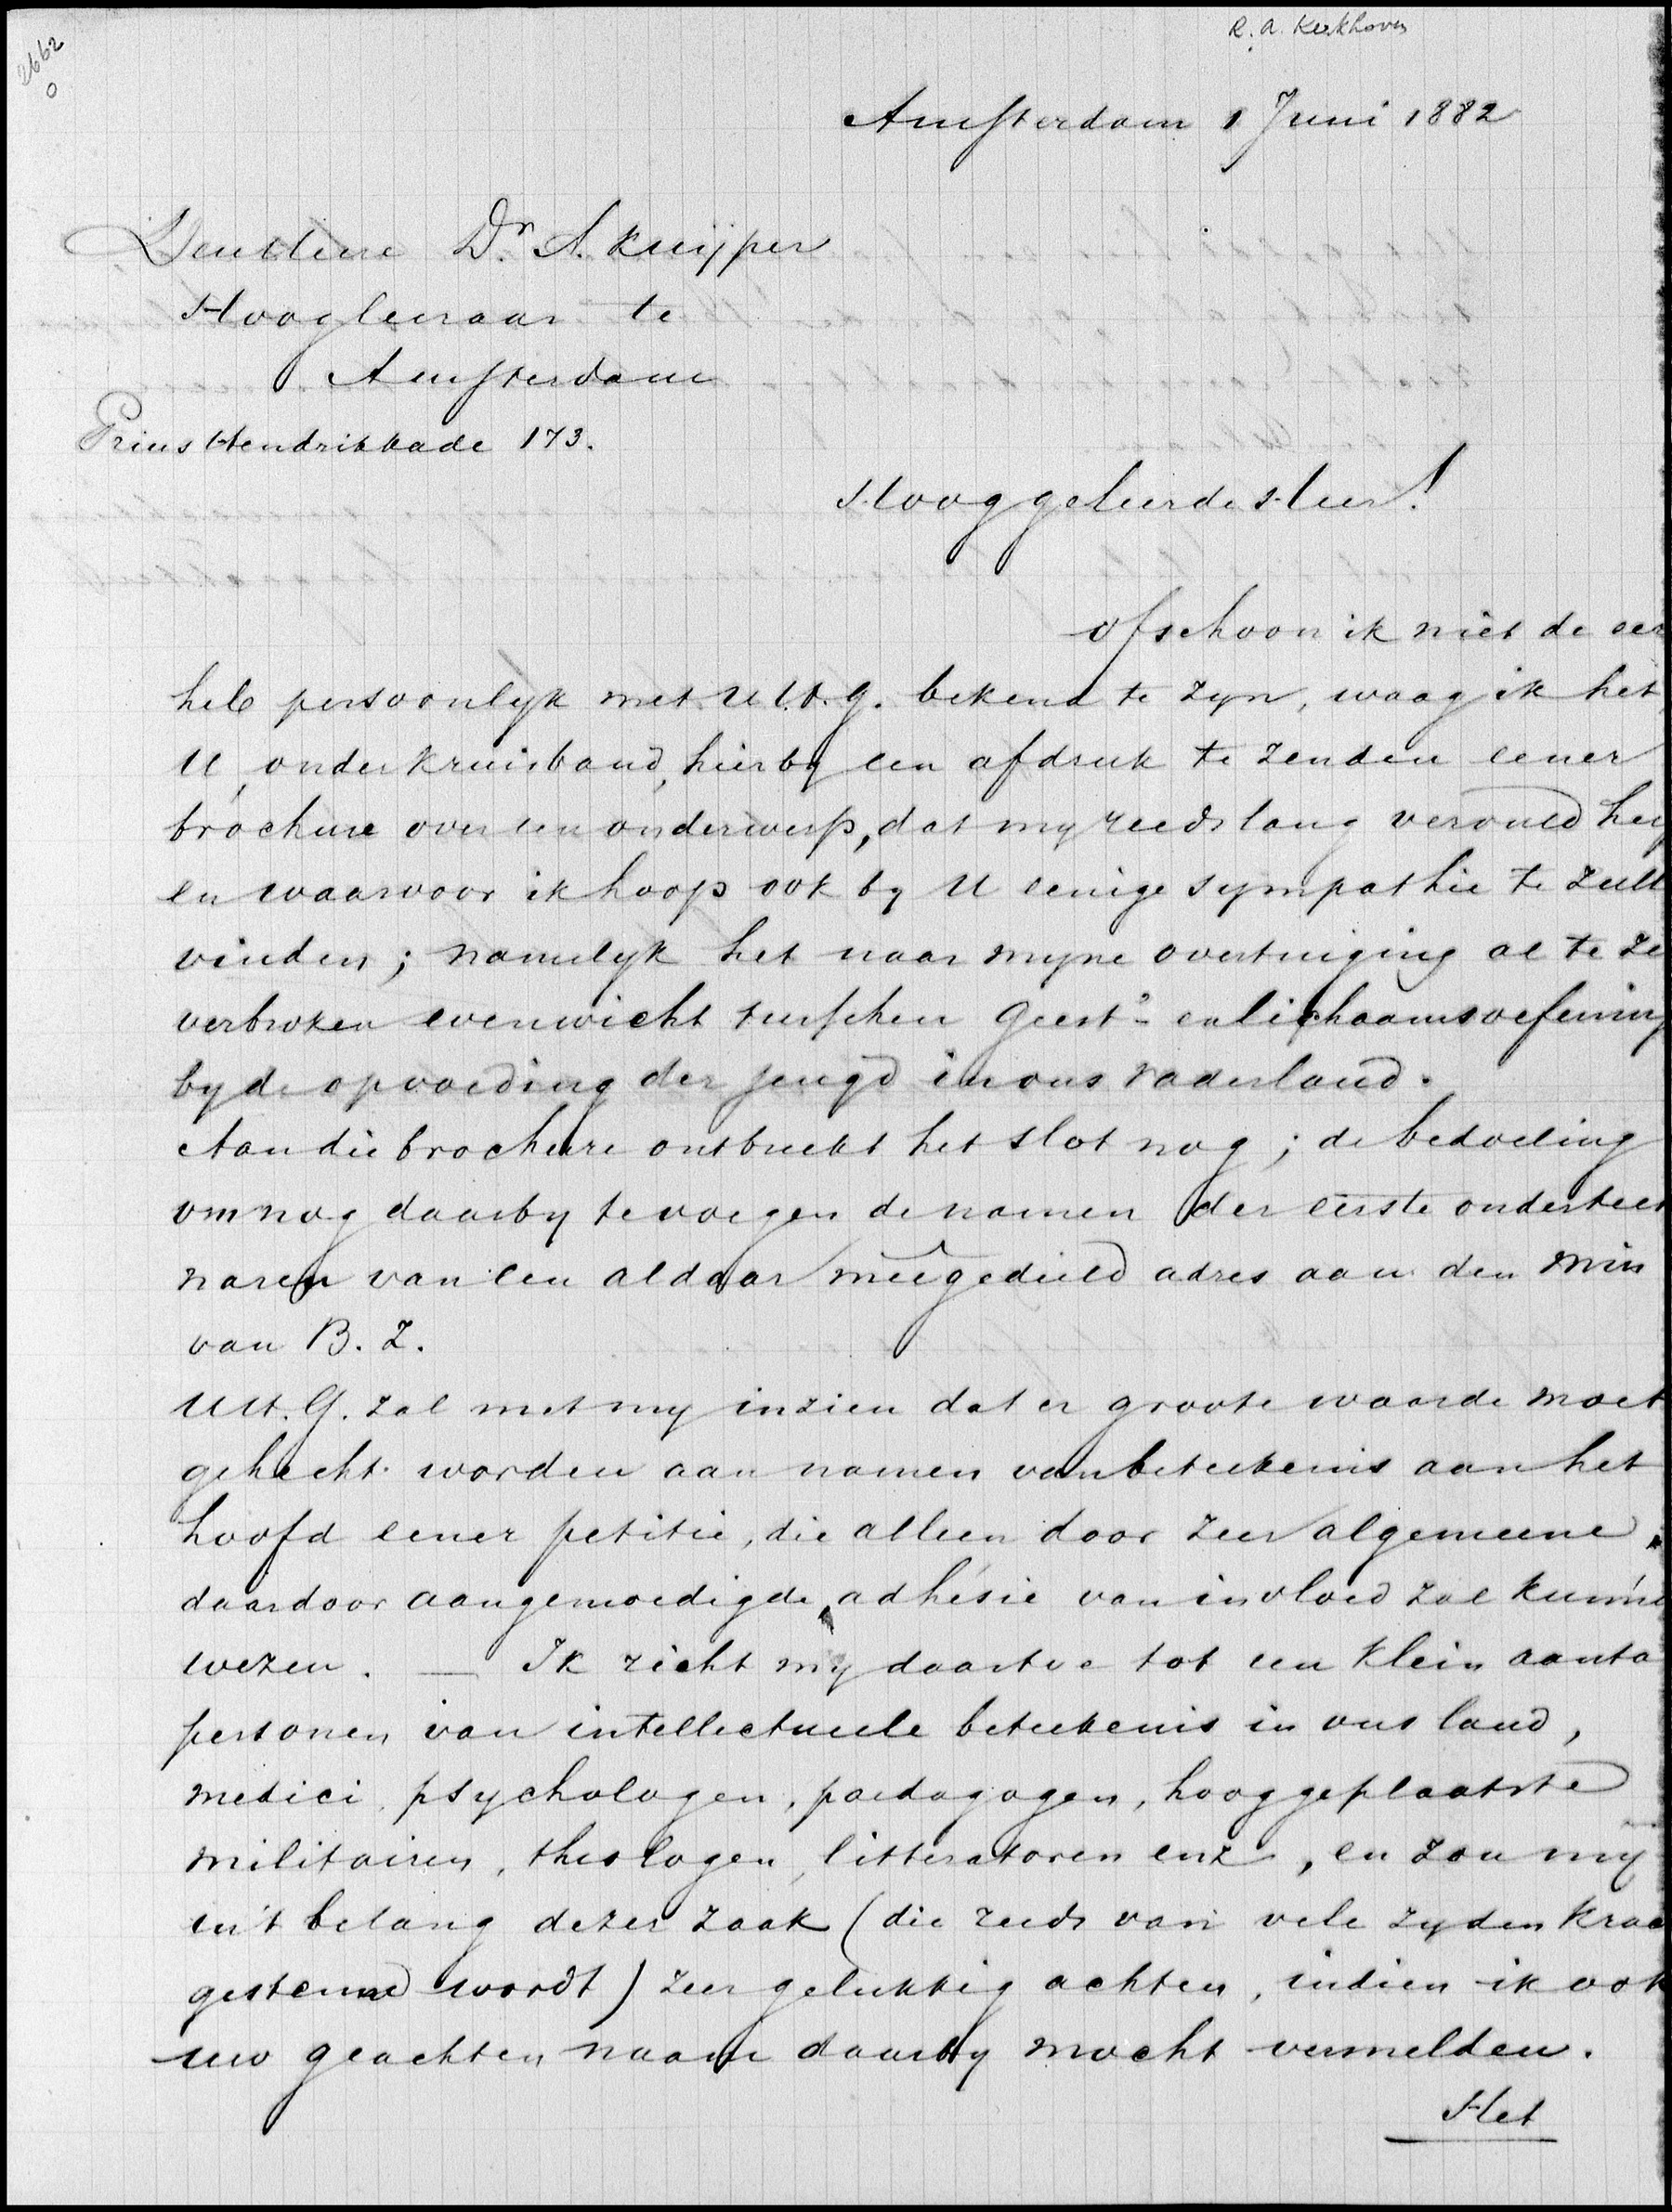 R. A. Kerkhoven
2662
0
Amsterdam 1 Juni 1882
Dr. A. Kuijper
Hoogleeraar te
Amsterdam
Prins Hendrikkade 173.
Hooggeleerde Heer!
ofschoon ik niet de eer
heb persoonlyk met U.H.G. bekend te zyn, waag ik het
U, onder kruisband, hierby een afdruk te zenden eener
brochure over een onderwerp, dat my reeds lang vervuld
en waarvoor ik hoop ook by U eenige sympathie te zull
vinden; namelyk het naar myne overtuiging al te ze
verbroken evenwicht tusschen Geest- en lichaamsoefening
by de opvoeding der jeugd in ons vaderland.
Aan die brochure ontbreekt het slot nog; de bedoeling
om nog daarby te voegen de namen der eerste onderteek
naren van een aldaar meegedeeld adres aan den Min
van B. Z.
U.H.G. zal met my inzien dat er groote waarde moet
gehecht worden aan namen van beteekenis aan het
hoofd eener petitie, die alleen door zeer algemeene,
daardoor aangemoedigde, adhésie van invloed zal kunne
wezen. — Ik richt my daartoe tot een klein aanta
personen van intellectueele beteekenis in ons land,
medici, psychologen, paedagogen, hooggeplaatste
militairen, theologen, litteratoren enz, en zou my
in 't belang dezer zaak (die reeds van vele zyden krac
gesteund wordt) zeer gelukkig achten, indien ik ook
uw geachten naam daarby mocht vermelden.
Het